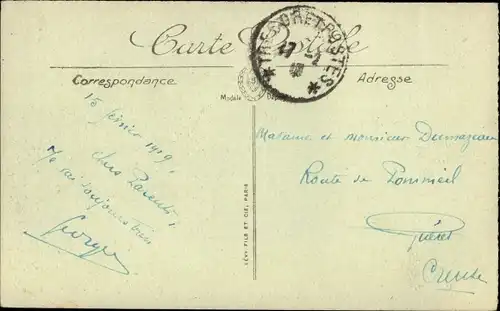 Carte Postale
TRESOR ET POSTES
17
Correspondance
Adresse
Modèle
15 février 1919,
Chers Parents,
Je vais toujours bien
Georges
LÉVY FILS ET CIE, PARIS
Madame et Monsieur Dumazeau
Route de Pommeil
Guéret
Creuse